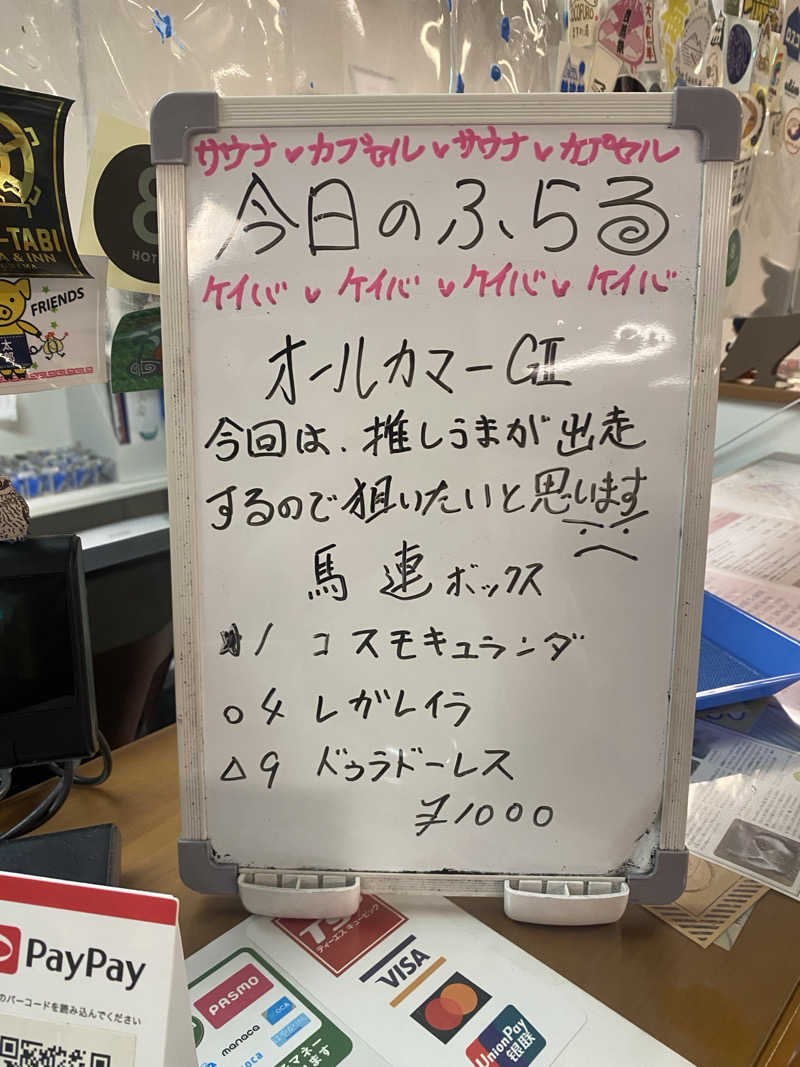 サウナ♥カプセル♥サウナ♥カプセル
今日のふらる
ケイバ♥ケイバ♥ケイバ♥ケイバ
オールカマーGⅡ
今回は、推しうまが出走
するので狙いたいと思います
馬連ボックス
1 コスモキュランダ
○4 レガレイラ
△9 ドゥラドーレス
¥1000
-TABI
& INN
HOT
FRIENDS
PayPay
のバーコードを読み込んでください
ティーエス キュービック
VISA
PASMO
manaca
UnionPay
银联